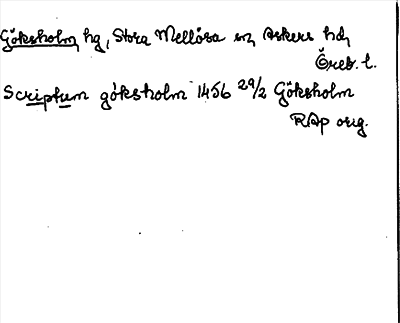 Göksholm, hg, Stora Mellösa sn, Askers hd,
Öreb. l.
Scriptum göksholm 1456 29/2 Göksholm
RAp orig.